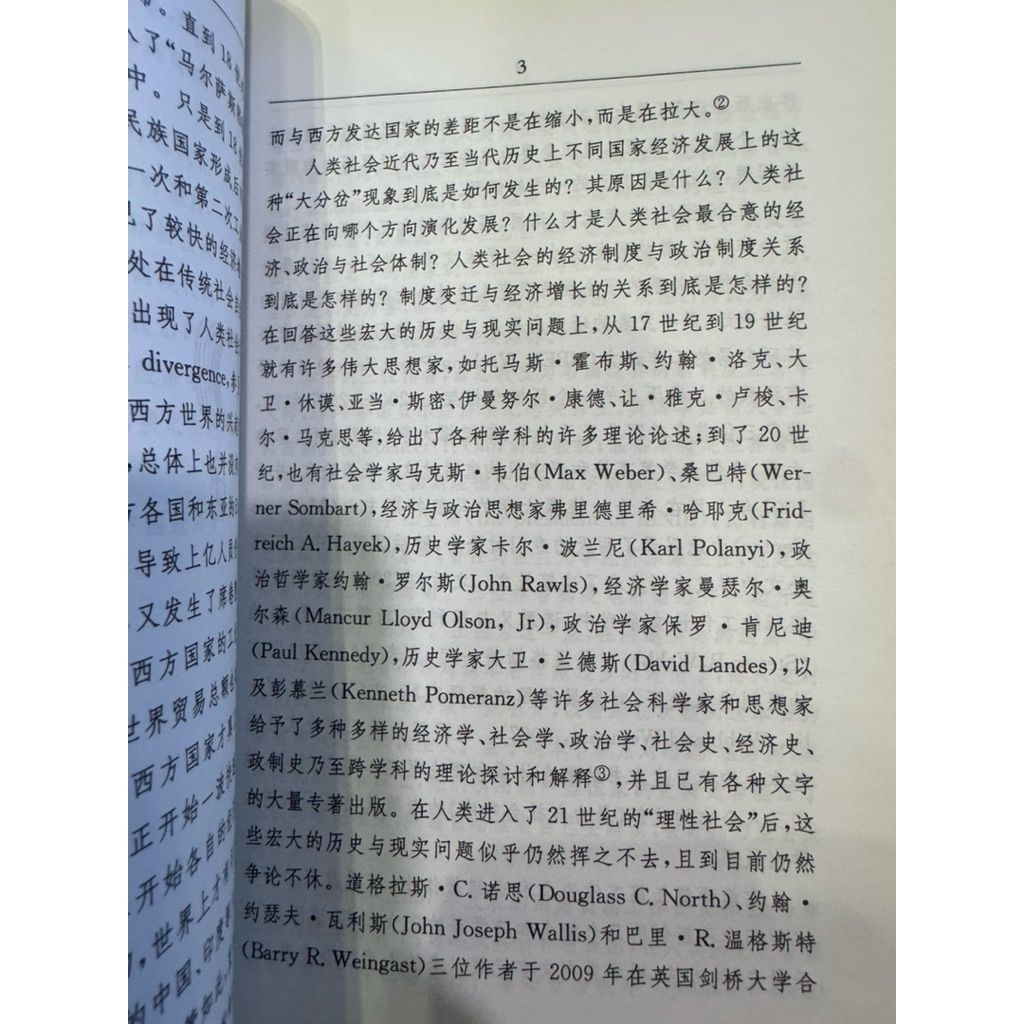 直到18世
入了“马尔萨斯
中。只是到18
民族国家形成后
一次和第二次工
了较快的经济增
处在传统社会
出现了人类社会
divergence,参
西方世界的兴
,总体上也并没
各国和东亚的
导致上亿人员
又发生了席卷
西方国家的工
世界贸易总额
西方国家才真
正开始一波快
开始各自的
,世界上才
的中国、印度
3
而与西方发达国家的差距不是在缩小,而是在拉大。②
人类社会近代乃至当代历史上不同国家经济发展上的这
种“大分岔”现象到底是如何发生的?其原因是什么?人类社
会正在向哪个方向演化发展?什么才是人类社会最合意的经
济、政治与社会体制?人类社会的经济制度与政治制度关系
到底是怎样的?制度变迁与经济增长的关系到底是怎样的?
在回答这些宏大的历史与现实问题上,从17世纪到19世纪
就有许多伟大思想家,如托马斯·霍布斯、约翰·洛克、大
卫·休谟、亚当·斯密、伊曼努尔·康德、让·雅克·卢梭、卡
尔·马克思等,给出了各种学科的许多理论论述;到了20世
纪,也有社会学家马克斯·韦伯(Max Weber)、桑巴特(Wer-
ner Sombart),经济与政治思想家弗里德里希·哈耶克(Frid-
reich A. Hayek),历史学家卡尔·波兰尼(Karl Polanyi),政
治哲学家约翰·罗尔斯(John Rawls),经济学家曼瑟尔·奥
尔森(Mancur Lloyd Olson, Jr),政治学家保罗·肯尼迪
(Paul Kennedy),历史学家大卫·兰德斯(David Landes),以
及彭慕兰(Kenneth Pomeranz)等许多社会科学家和思想家
给予了多种多样的经济学、社会学、政治学、社会史、经济史、
政制史乃至跨学科的理论探讨和解释③,并且已有各种文字
的大量专著出版。在人类进入了21世纪的“理性社会”后,这
些宏大的历史与现实问题似乎仍然挥之不去,且到目前仍然
争论不休。道格拉斯·C.诺思(Douglass C. North)、约翰·
约瑟夫·瓦利斯(John Joseph Wallis)和巴里·R.温格斯特
(Barry R. Weingast)三位作者于2009年在英国剑桥大学合